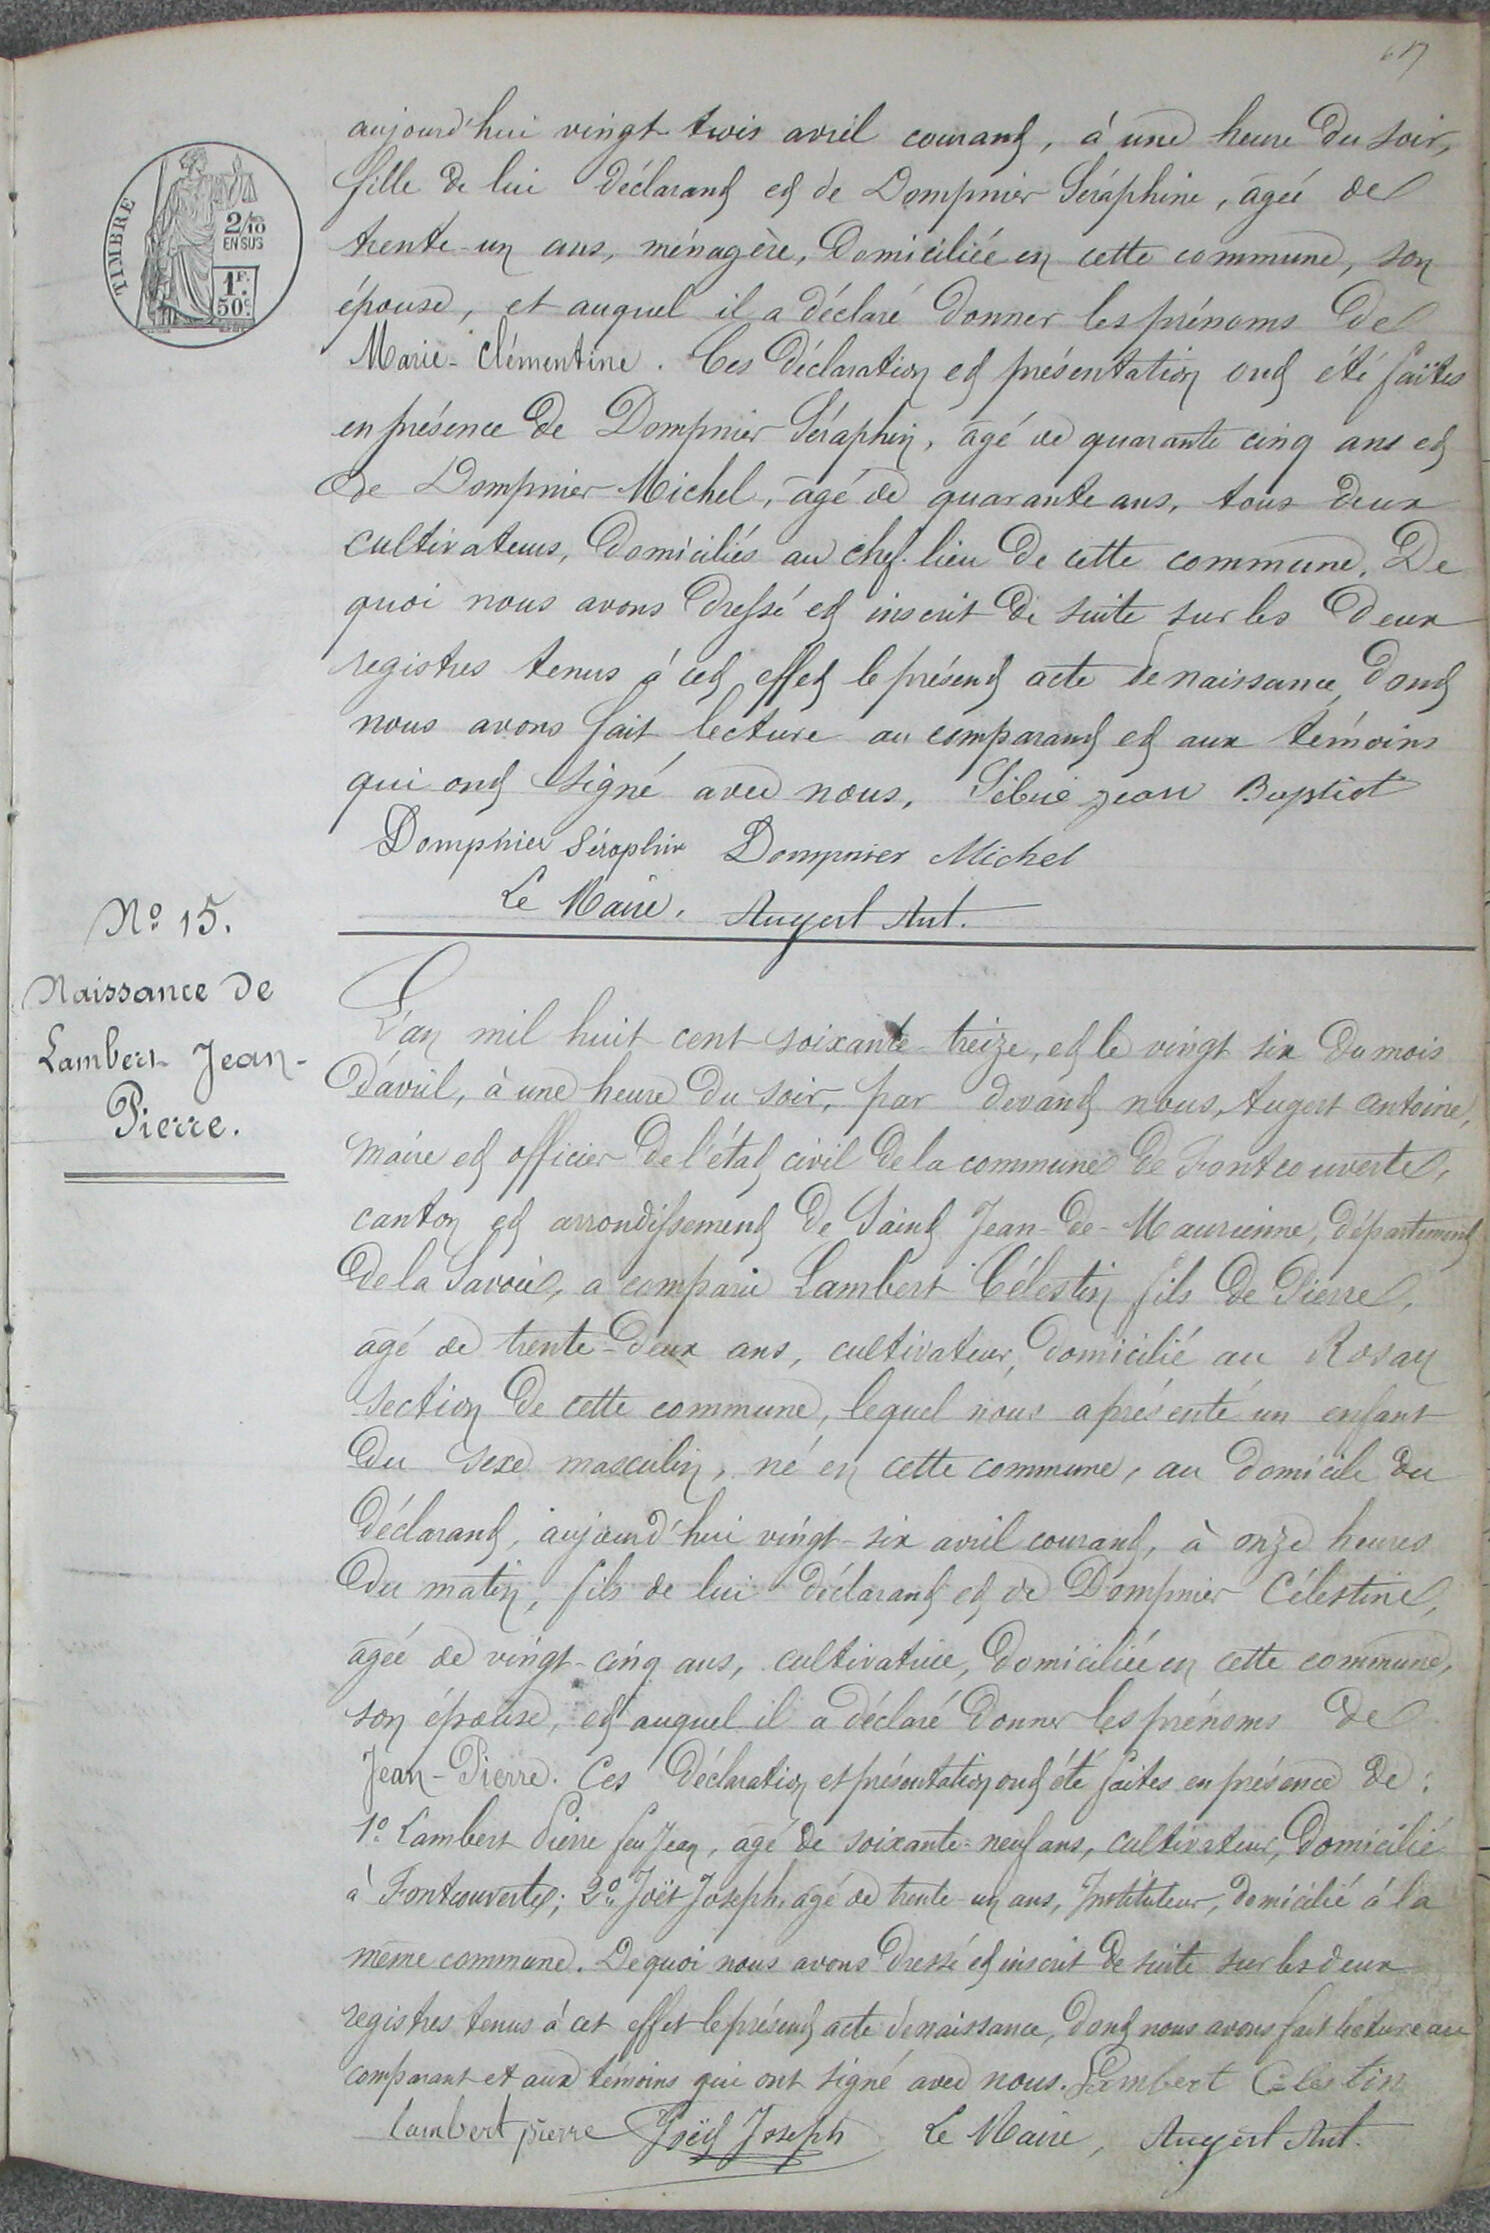 617
TIMBRE
2/10
EN SUS
1F.
50c.
aujourd'hui vingt-trois avril courant, à une heure du soir,
fille de lui déclarant et de Dompnier Séraphine, agée de
trente-un ans, ménagère, domiciliée en cette commune, son
épouse, et auquel il a déclaré donner les prénoms de
Marie-Clémentine. Ces déclaration et présentation ont été faites
en présence de Dompnier Séraphin, agé de quarante cinq ans et
de Dompnier Michel, agé de quarante ans, tous deux
cultivateurs, domiciliés au chef-lieu de cette commune. De
quoi nous avons dressé et inscrit de suite sur les deux
registres tenus à cet effet le présent acte de naissance, dont
nous avons fait lecture au comparant et aux témoins
qui ont signé avec nous, Sibué jean Baptist
Dompnier Séraphin Dompnier Michel
Le Maire, Augert Ant.
No 15.
Naissance de
Lambert Jean-
Pierre.
L'an mil huit cent soixante-treize, et le vingt six du mois
d'avril, à une heure du soir, par devant nous, Augert Antoine,
maire et officier de l'état civil de la commune de Fontcouverte,
canton et arrondissement de Saint Jean-de-Maurienne, département
de la Savoie, a comparu Lambert Célestin fils de Pierre,
agé de trente-deux ans, cultivateur, domicilié au Rosay
section de cette commune, lequel nous a présenté un enfant
du sexe masculin, né en cette commune, au domicile du
déclarant, aujourd'hui vingt-six avril courant, à onze heures
du matin, fils de lui déclarant et de Dompnier Célestine,
agée de vingt-cinq ans, cultivatrice, domiciliée en cette commune,
son épouse, et auquel il a déclaré donner les prénoms de
Jean-Pierre. Ces déclaration et présentation ont été faites en présence de:
1o Lambert Pierre feu Jean, agé de soixante-neuf ans, cultivateur, domicilié
à Fontcouverte; 2o Joët Joseph, agé de trente-un ans, Instituteur, domicilié à la
même commune. De quoi nous avons dressé et inscrit de suite sur les deux
registres tenus à cet effet le présent acte de naissance, dont nous avons fait lecture au
comparant et aux témoins qui ont signé avec nous. Lambert Célestin
lambert pierre Joët Joseph Le Maire, Augert Ant.